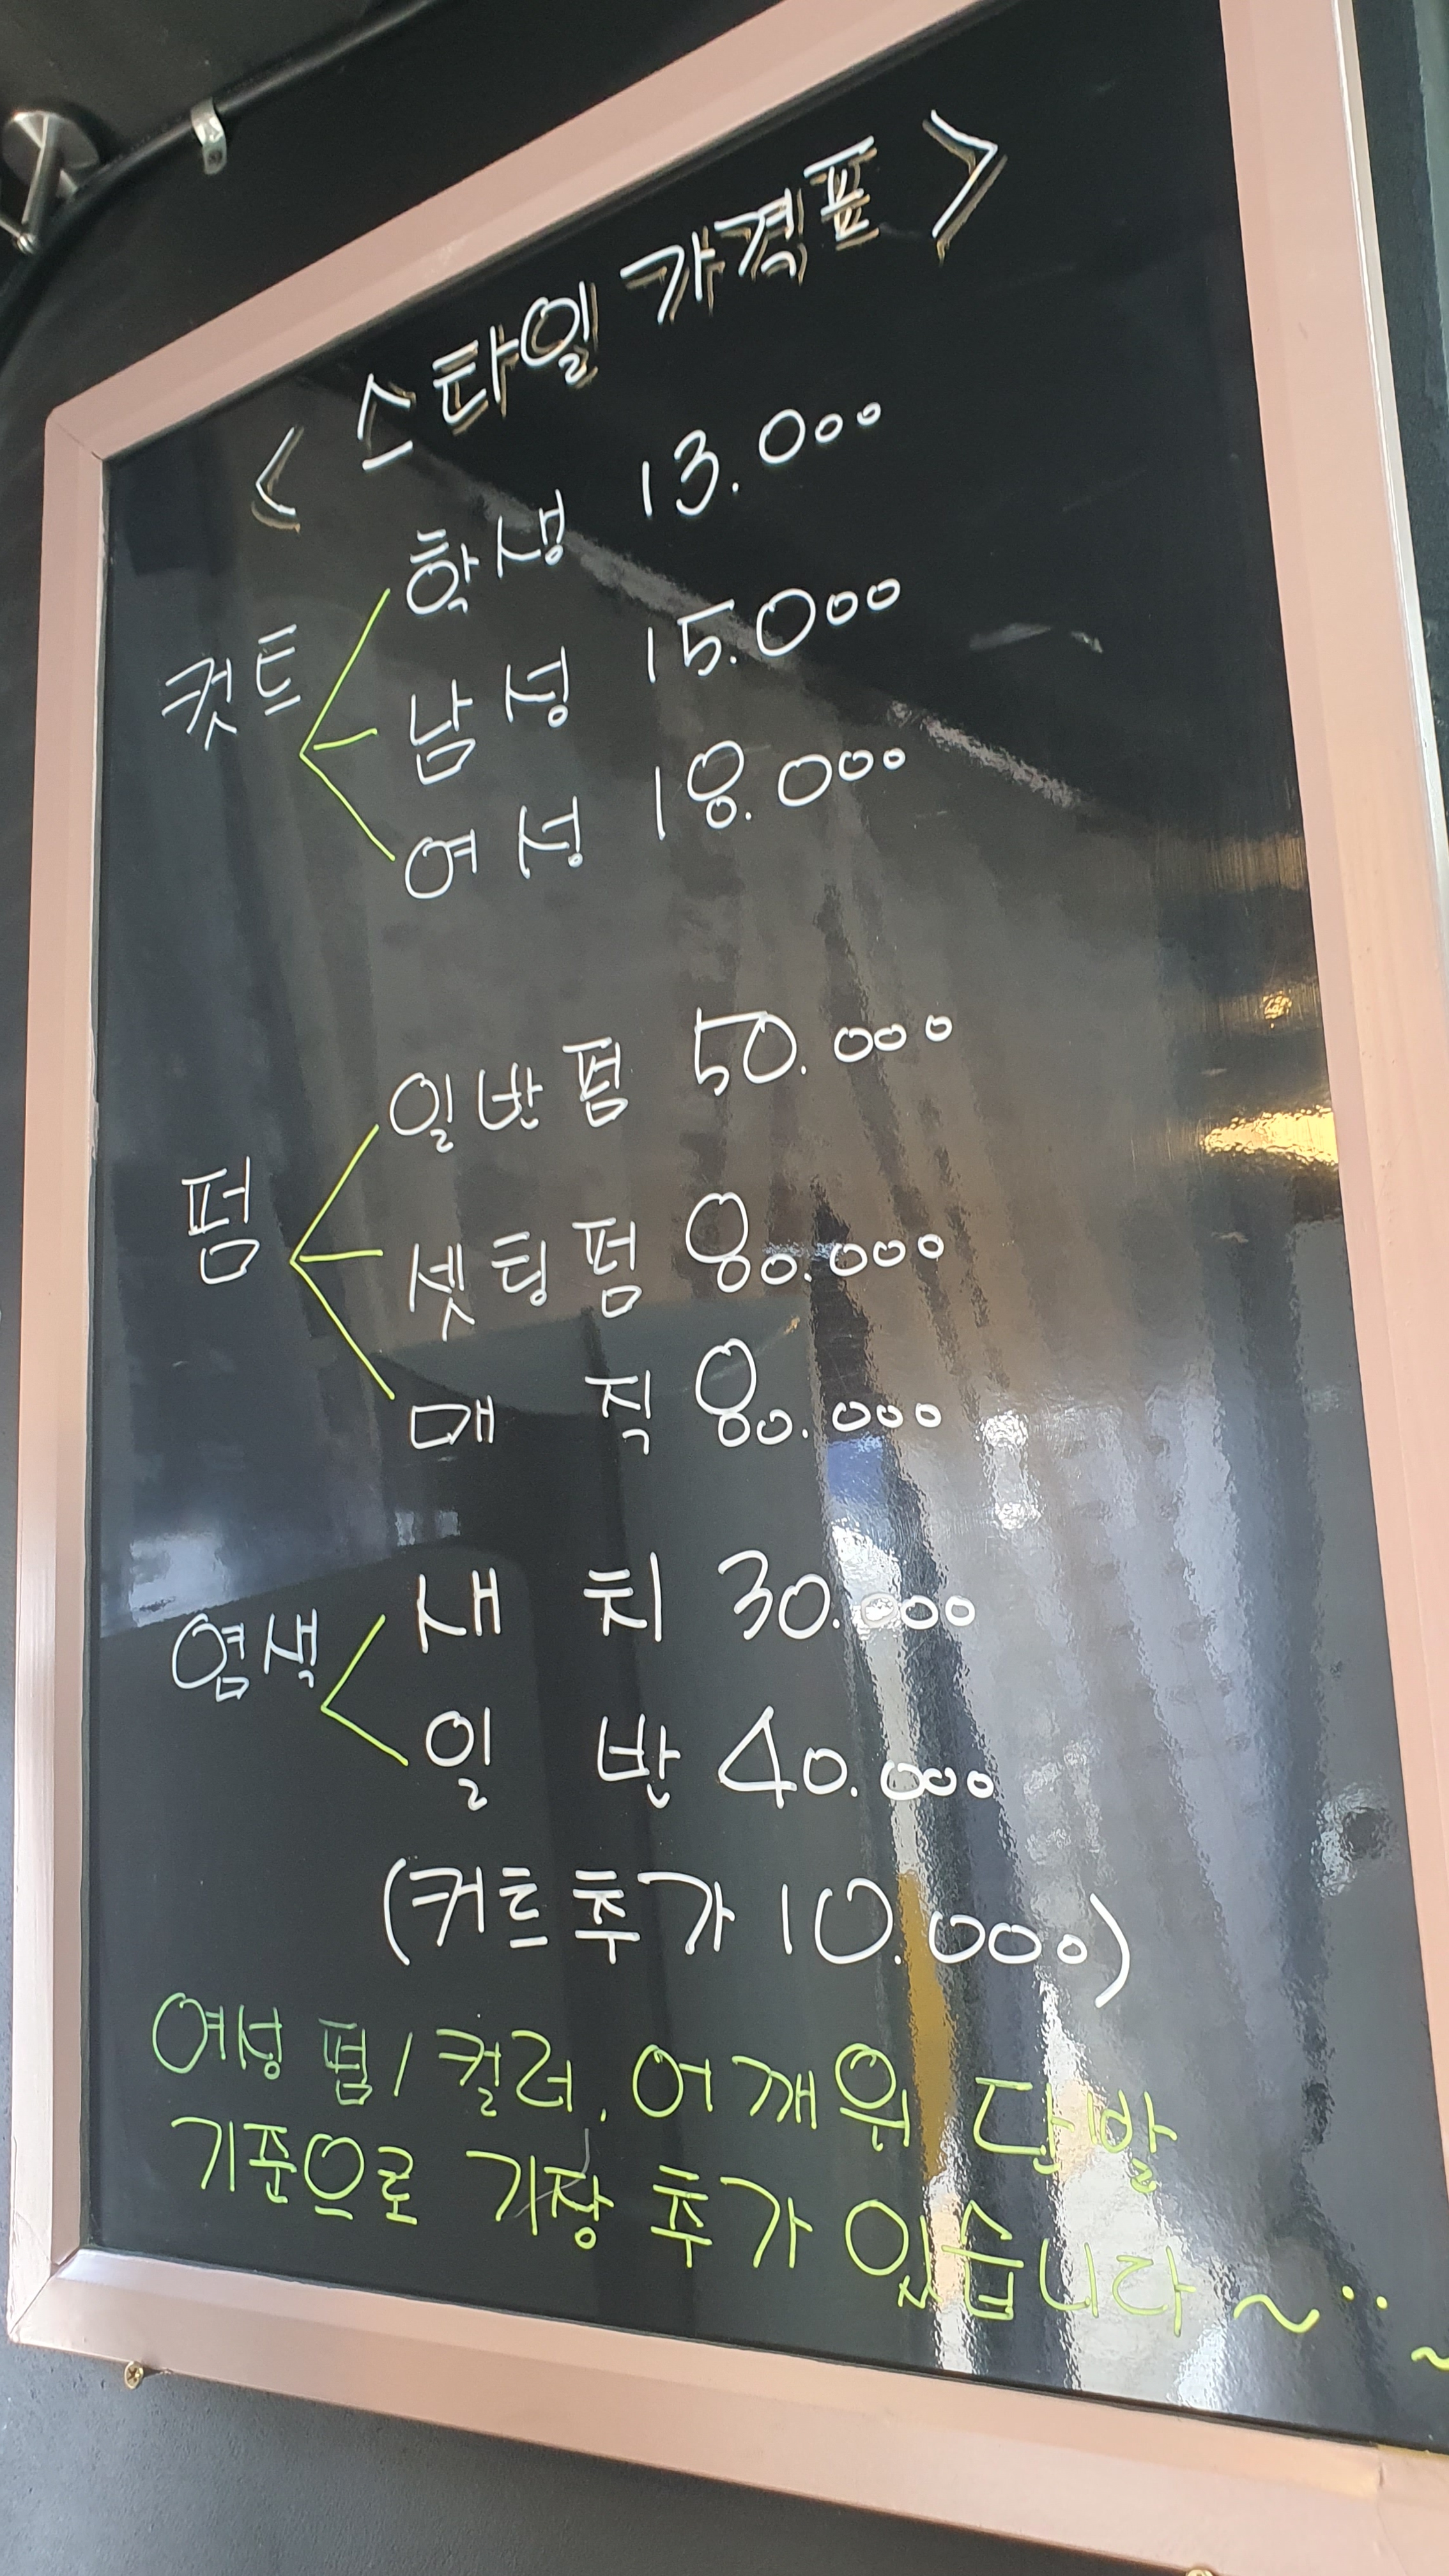 < 스타일 가격표 >
컷트
학생 13.000
남성 15.000
여성 18.000
펌
일반펌 50.000
셋팅펌 80.000
매 직 80.000
염색
새 치 30.000
일 반 40.000
(커트 추가 10.000)
여성 펌/컬러, 어깨위 단발
기준으로 기장 추가 있습니다~